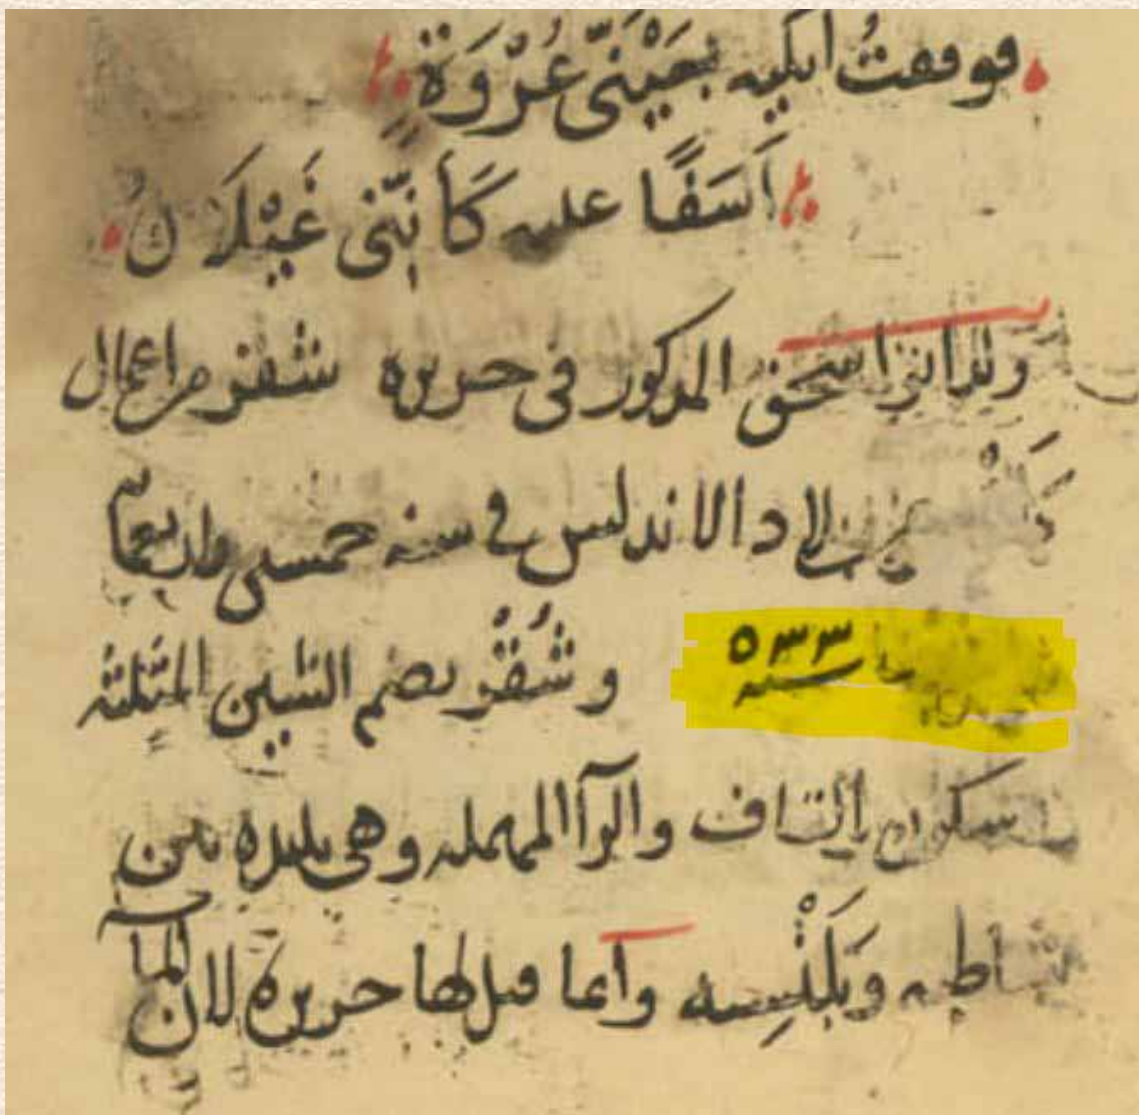 فوقفتُ ابكيه بعَيْنَيّ عُرْوَةٍ
اَسَفًا عليه كَأَنَّنى غَيْلَانُ
ولد ابو اسحق المذكور فى جزيرة شقر من اعمال
بلاد الاندلس فى سنه خمسين واربعمائه
سنه ٥٣٣ وشُقْر بضم الشين المثلثه
سكون القاف والرآ المهمله وهى بليده بين
شاطبه وبَلَنْسِيه وانما قيل لها جزيرة لان الما